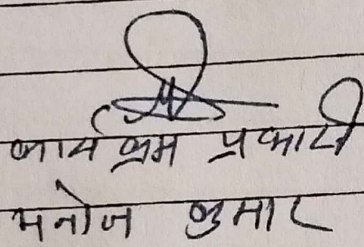 कार्यक्रम प्रभारी
मनोज कुमार